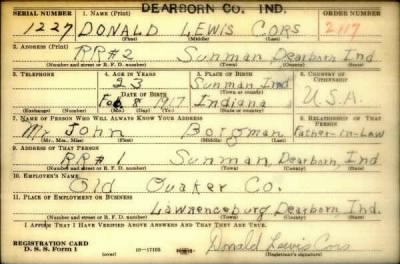 DEARBORN CO. IND.
SERIAL NUMBER 1. NAME (Print) ORDER NUMBER
1227 DONALD LEWIS CORS 2117
(First) (Middle) (Last)
2. ADDRESS (Print)
RR#2 Sunman Dearborn Ind
(Number and street or R. F. D. number) (Town) (County) (State)
3. TELEPHONE 4. AGE IN YEARS 5. PLACE OF BIRTH 6. COUNTRY OF CITIZENSHIP
23 Sunman Ind
DATE OF BIRTH (Town or county)
Feb 8 1917 Indiana U.S.A.
(Exchange) (Number) (Mo.) (Day) (Yr.) (State or country)
7. NAME OF PERSON WHO WILL ALWAYS KNOW YOUR ADDRESS 8. RELATIONSHIP OF THAT PERSON
Mr. John Borgman Father-in-Law
(Mr., Mrs., Miss) (First) (Middle) (Last)
9. ADDRESS OF THAT PERSON
RR#1 Sunman, Dearborn, Ind.
(Number and street or R. F. D. number) (Town) (County) (State)
10. EMPLOYER'S NAME
Old Quaker Co.
11. PLACE OF EMPLOYMENT OR BUSINESS
Lawrenceburg Dearborn Ind.
(Number and street or R. F. D. number) (Town) (County) (State)
I AFFIRM THAT I HAVE VERIFIED ABOVE ANSWERS AND THAT THEY ARE TRUE.
REGISTRATION CARD
D. S. S. Form 1 (over) 16-17105 Donald Lewis Cors
(Registrant's signature)